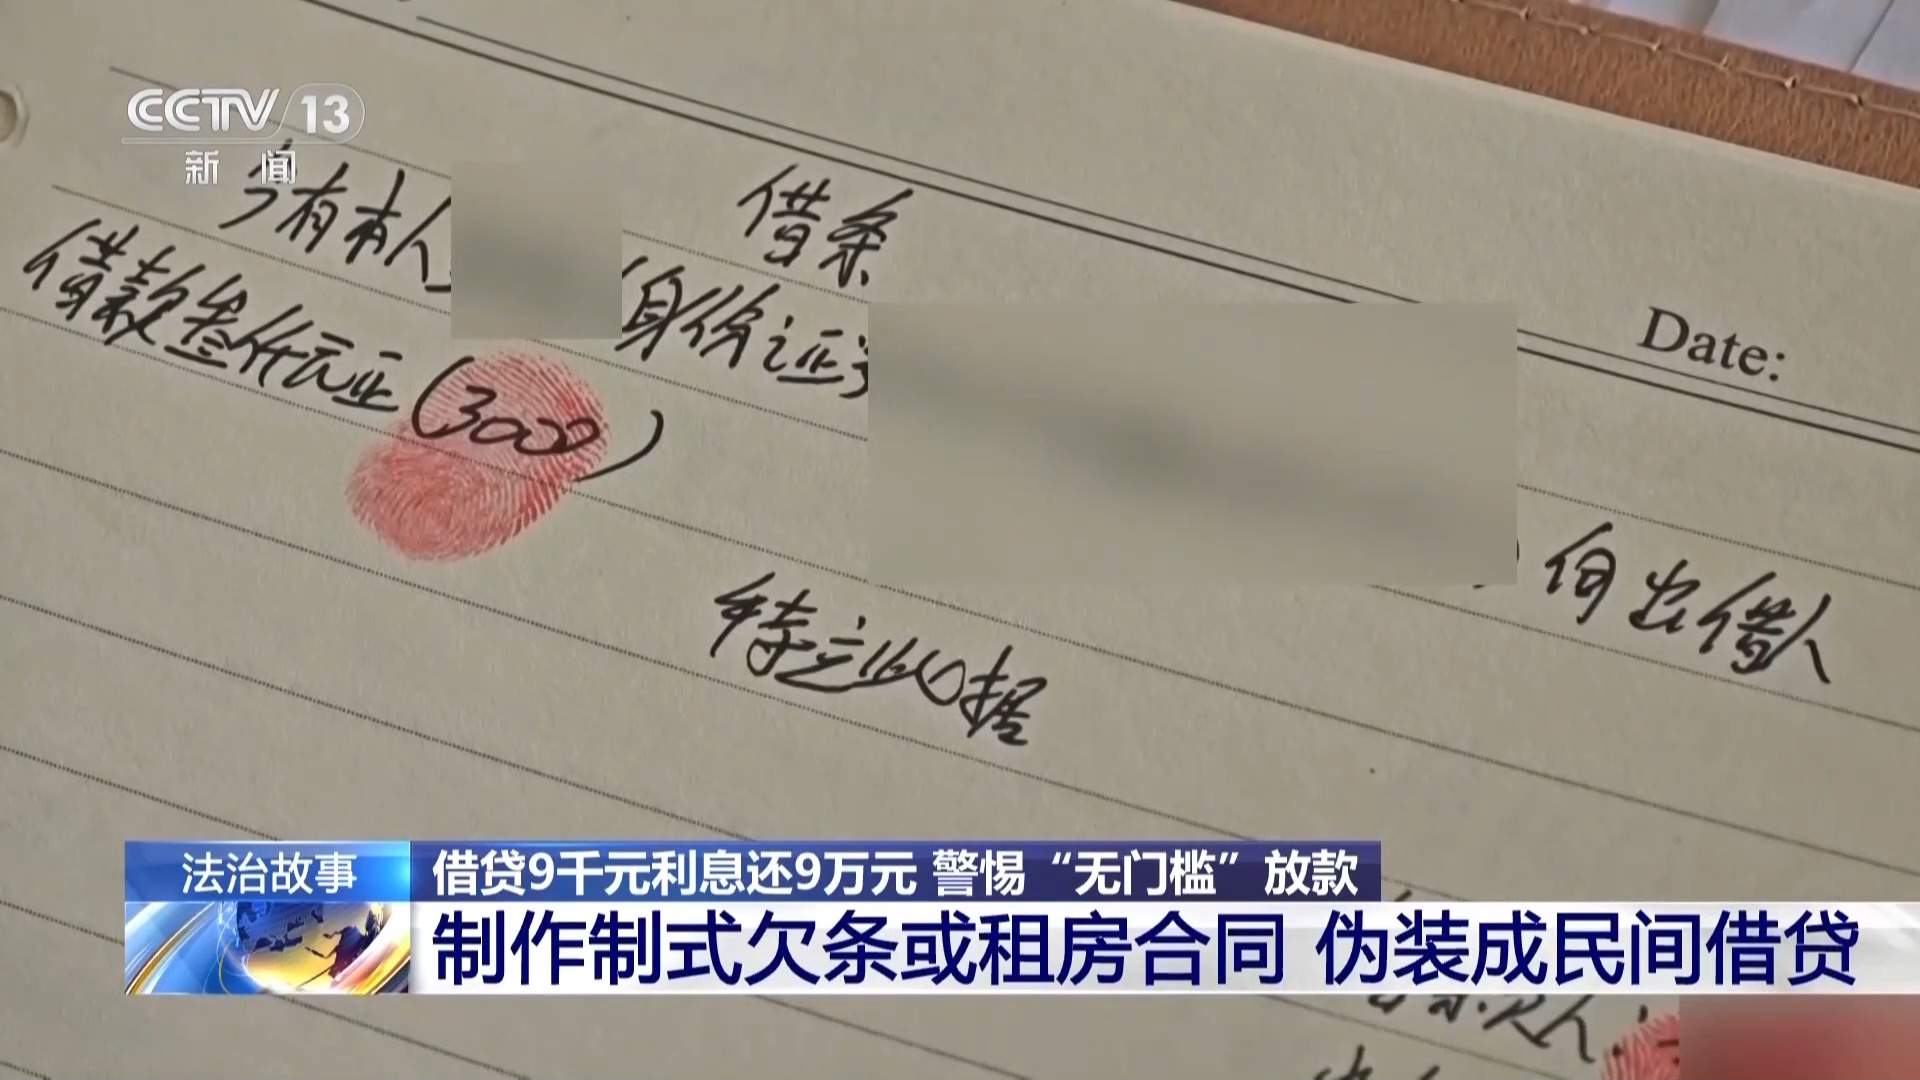 CCTV 13
新闻
借条
Date:
今有本人 身份证号 向出借人
借款叁仟元正(3000)
特立此据
借款人:
法治故事
借贷9千元利息还9万元 警惕“无门槛”放款
制作制式欠条或租房合同 伪装成民间借贷